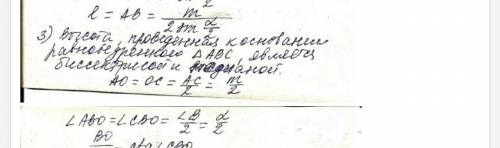 2
l = AB = m / 2 sin α/2
3) Высота, проведенная к основанию
равнобедренного ΔABC, является
биссектрисой и медианой.
AO = OC = AC/2 = m/2
∠ABO = ∠CBO = ∠B/2 = α/2
BO ∠CBO